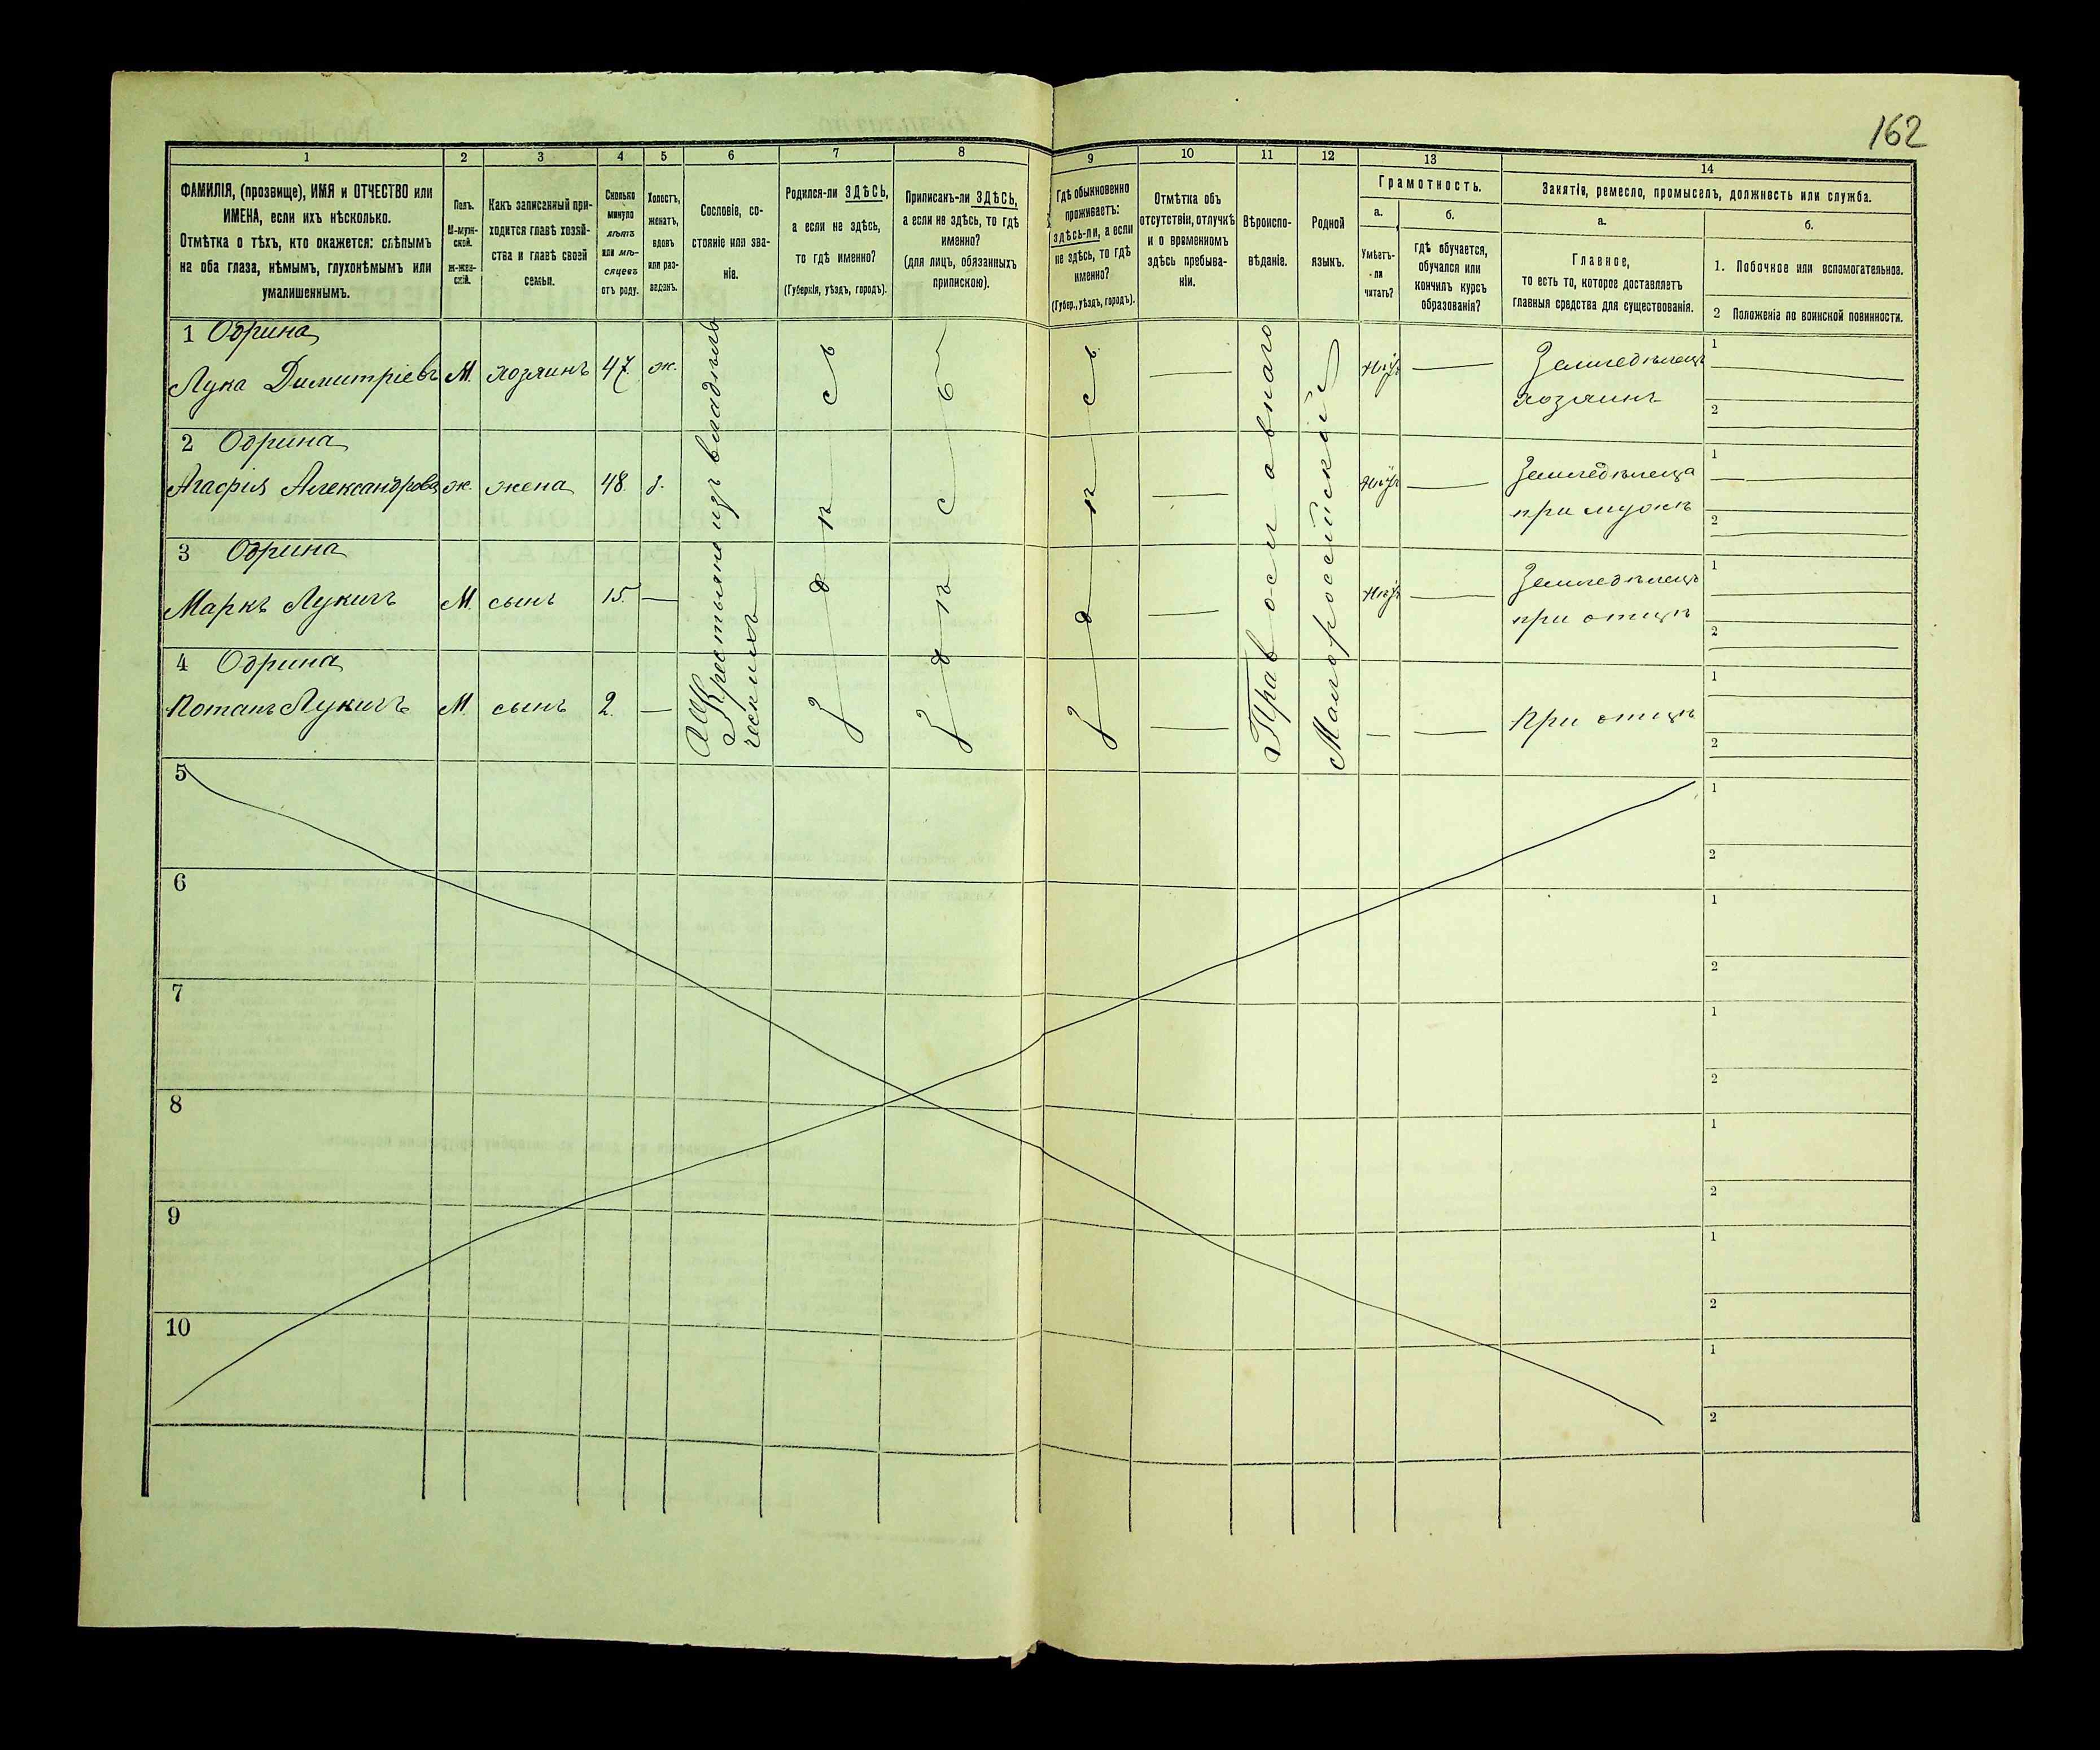 162
1 2 3 4 5 6 7 8 9 10 11 12 13 14
ФАМИЛІЯ, (прозвище), ИМЯ и ОТЧЕСТВО или
ИМЕНА, если ихъ нѣсколько.
Отмѣтка о тѣхъ, кто окажется: слѣпымъ
на оба глаза, нѣмымъ, глухонѣмымъ или
умалишеннымъ.
Полъ.
М-муж-
ской.
ж-жен-
скій.
Какъ записанный при-
ходится главѣ хозяй-
ства и главѣ своей
семьи.
Сколько
минуло
лѣтъ
или мѣ-
сяцевъ
отъ роду.
Холостъ,
женатъ,
вдовъ
или раз-
веденъ.
Сословіе, со-
стояніе или зва-
ніе.
Родился-ли ЗДѢСЬ,
а если не здѣсь,
то гдѣ именно?
(Губернія, уѣздъ, городъ).
Приписанъ-ли ЗДѢСЬ,
а если не здѣсь, то гдѣ
именно?
(для лицъ, обязанныхъ
припискою).
Гдѣ обыкновенно
проживаетъ:
здѣсь-ли, а если
не здѣсь, то гдѣ
именно?
(Губер., уѣздъ, городъ).
Отмѣтка объ
отсутствіи, отлучкѣ
и о временномъ
здѣсь пребыва-
ніи.
Вѣроиспо-
вѣданіе.
Родной
языкъ.
Грамотность.
а.
Умѣетъ-
-ли
читать?
б.
гдѣ обучается,
обучался или
кончилъ курсъ
образованія?
Занятіе, ремесло, промыселъ, должность или служба.
а.
Главное,
то есть то, которое доставляетъ
главныя средства для существованія.
б.
1. Побочное или вспомогательное.
2 Положеніе по воинской повинности.
1 Одрина
Лука Димитріевъ М. хозяинъ 47. ж.
Земледѣлецъ
хозяинъ
1
2
2 Одрина
Агафія Александрова ж. жена 48.
Земледѣлеца
при мужѣ
1
2
3 Одрина
Маркъ Лукичъ М. сынъ 15.
Земледѣлецъ
при отцѣ
1
2
4 Одрина
Потапъ Лукичъ М. сынъ 2.
При отцѣ
1
2
Крестьяне изъ владѣль
ческихъ
Здѣсь
Здѣсь
Православнаго
Малороссійскій
5
1
2
6
1
2
7
1
2
8
1
2
9
1
2
10
1
2